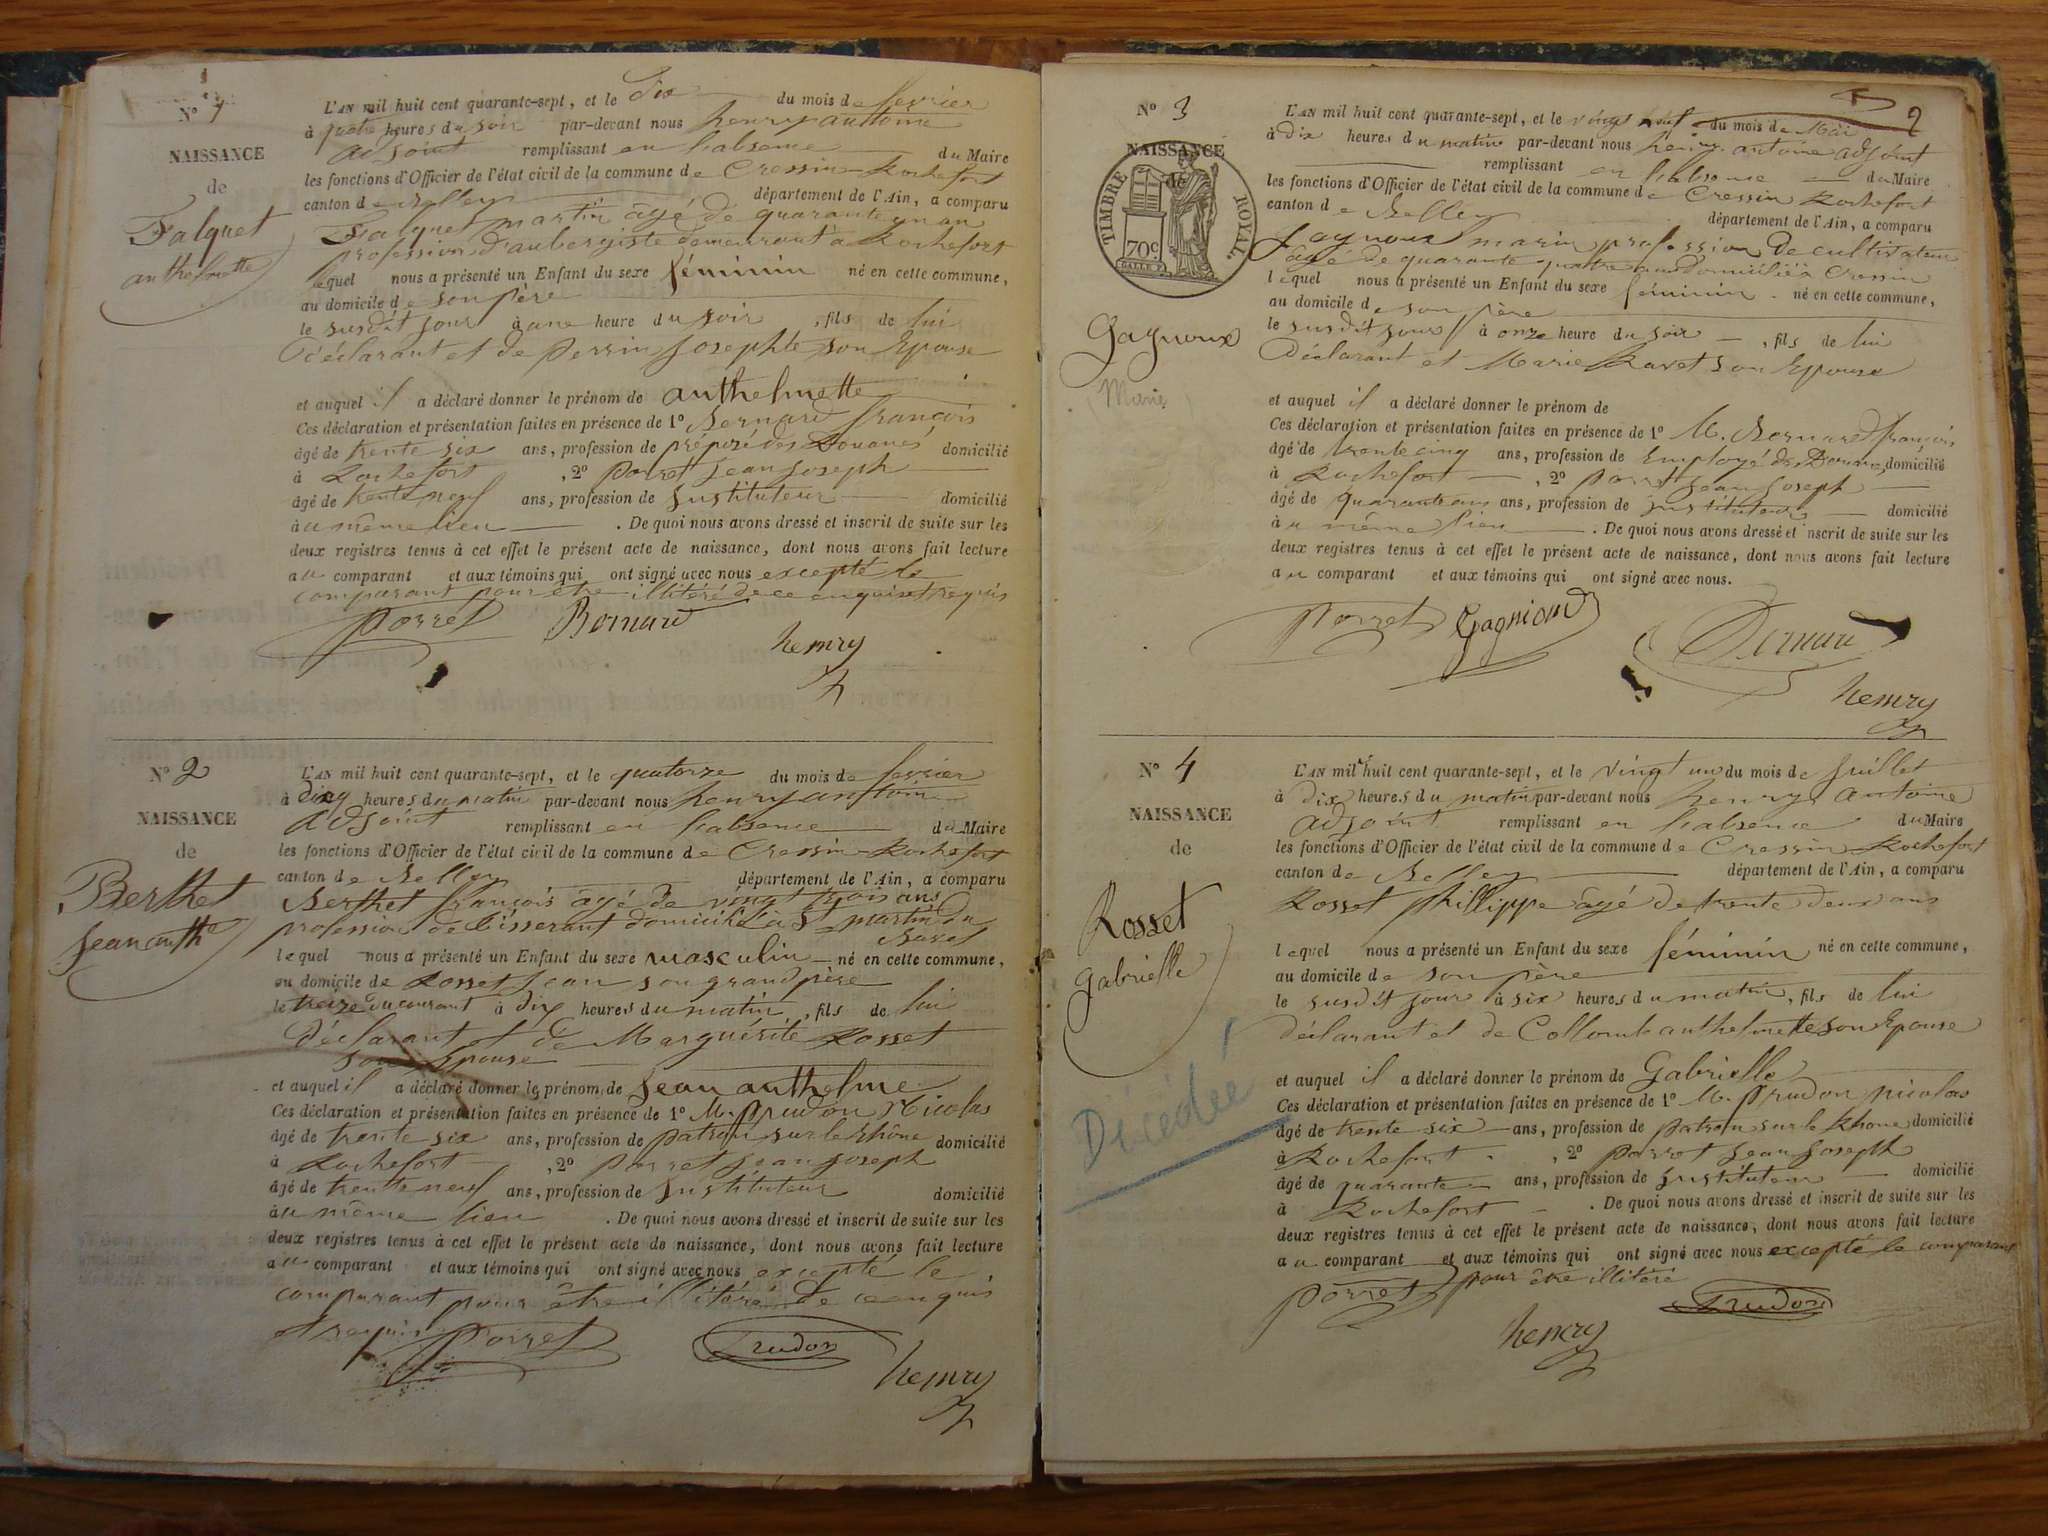 Nº 1
NAISSANCE
de
Falquet
anthelmette
L'AN mil huit cent quarante-sept, et le dix du mois de fevrier
à quatre heures du soir par-devant nous henry antoine
adjoint remplissant en l'absence du Maire
les fonctions d'Officier de l'état civil de la commune de Cressin Rochefort
canton de Belley département de l'Ain, a comparu
Falquet martin âgé de quarante un an
profession d'aubergiste demeurant à Rochefort
lequel nous a présenté un Enfant du sexe féminin né en cette commune,
au domicile de son père
le susdit jour à une heure du soir, fils de lui
déclarant et de perrin Josephte son Epouse
et auquel il a déclaré donner le prénom de anthelmette
Ces déclaration et présentation faites en présence de 1º Bernard françois
âgé de trente six ans, profession de préposé des Douanes domicilié
à Rochefort, 2º porret jean joseph
âgé de trente neuf ans, profession de Instituteur domicilié
à u même lieu. De quoi nous avons dressé et inscrit de suite sur les
deux registres tenus à cet effet le présent acte de naissance, dont nous avons fait lecture
au comparant et aux témoins qui ont signé avec nous excepté le
comparant pour être illitéré de ce enquis et requis
porret Bernard
henry
Nº 2
NAISSANCE
de
Berthet
jean anth
L'AN mil huit cent quarante-sept, et le quatorze du mois de fevrier
à dix heures du matin par-devant nous henry antoine
adjoint remplissant en l'absence du Maire
les fonctions d'Officier de l'état civil de la commune de Cressin Rochefort
canton de Belley département de l'Ain, a comparu
Berthet françois âgé de vingt trois ans
profession de tisserant domicilié à St martin du
Bavel
lequel nous a présenté un Enfant du sexe masculin né en cette commune,
au domicile de Rosset Jean son grand père
le treize du courant à dix heures du matin, fils de lui
déclarant et de Marguérite Rosset
son Epouse
et auquel il a déclaré donner le prénom de Jean anthelme
Ces déclaration et présentation faites en présence de 1º M. prudon Nicolas
âgé de trente six ans, profession de patron sur le Rhône domicilié
à Rochefort, 2º porret jean joseph
âgé de trente neuf ans, profession de Instituteur domicilié
à u même lieu. De quoi nous avons dressé et inscrit de suite sur les
deux registres tenus à cet effet le présent acte de naissance, dont nous avons fait lecture
au comparant et aux témoins qui ont signé avec nous excepté le
comparant pour être illitéré de ce enquis
et requis porret Prudon
henry
2
Nº 3
NAISSANCE
de
TIMBRE ROYAL.
70 c
Gagnoux
(Marie)
L'AN mil huit cent quarante-sept, et le vingt neuf du mois de Mai
à dix heures du matin par-devant nous henry antoine adjoint
remplissant en l'absence du Maire
les fonctions d'Officier de l'état civil de la commune de Cressin Rochefort
canton de Belley département de l'Ain, a comparu
Gagnoux marin profession de cultivateur
âgé de quarante quatre ans domicilié à Cressin
lequel nous a présenté un Enfant du sexe féminin né en cette commune,
au domicile de son père
le susdit jour à onze heure du soir, fils de lui
Déclarant et Marie Ravet son Epouse
et auquel il a déclaré donner le prénom de
Ces déclaration et présentation faites en présence de 1º M. Bernard françois
âgé de trente cinq ans, profession de Employé des Douanes domicilié
à Rochefort, 2º porret jean joseph
âgé de quarante ans ans, profession de instituteur domicilié
à u même lieu. De quoi nous avons dressé et inscrit de suite sur les
deux registres tenus à cet effet le présent acte de naissance, dont nous avons fait lecture
au comparant et aux témoins qui ont signé avec nous.
Porret Gagnioud Bernard
henry
Nº 4
NAISSANCE
de
Rosset
gabrielle
Décédée
L'AN mil huit cent quarante-sept, et le vingt un du mois de Juillet
à dix heures du matin par-devant nous henry antoine
adjoint remplissant en l'absence du Maire
les fonctions d'Officier de l'état civil de la commune de Cressin Rochefort
canton de Belley département de l'Ain, a comparu
Rosset phillippe âgé de trente deux ans
lequel nous a présenté un Enfant du sexe féminin né en cette commune,
au domicile de son père
le susdit jour à six heures du matin, fils de lui
déclarant et de Collomb anthelmette son Epouse
et auquel il a déclaré donner le prénom de Gabrielle
Ces déclaration et présentation faites en présence de 1º M. prudon nicolas
âgé de trente six ans, profession de patron sur le Rhone domicilié
à Rochefort, 2º porret Jean Joseph
âgé de quarante ans, profession de instituteur domicilié
à Rochefort. De quoi nous avons dressé et inscrit de suite sur les
deux registres tenus à cet effet le présent acte de naissance, dont nous avons fait lecture
au comparant et aux témoins qui ont signé avec nous excepté le comparant
pour être illitéré
porret Prudon
henry